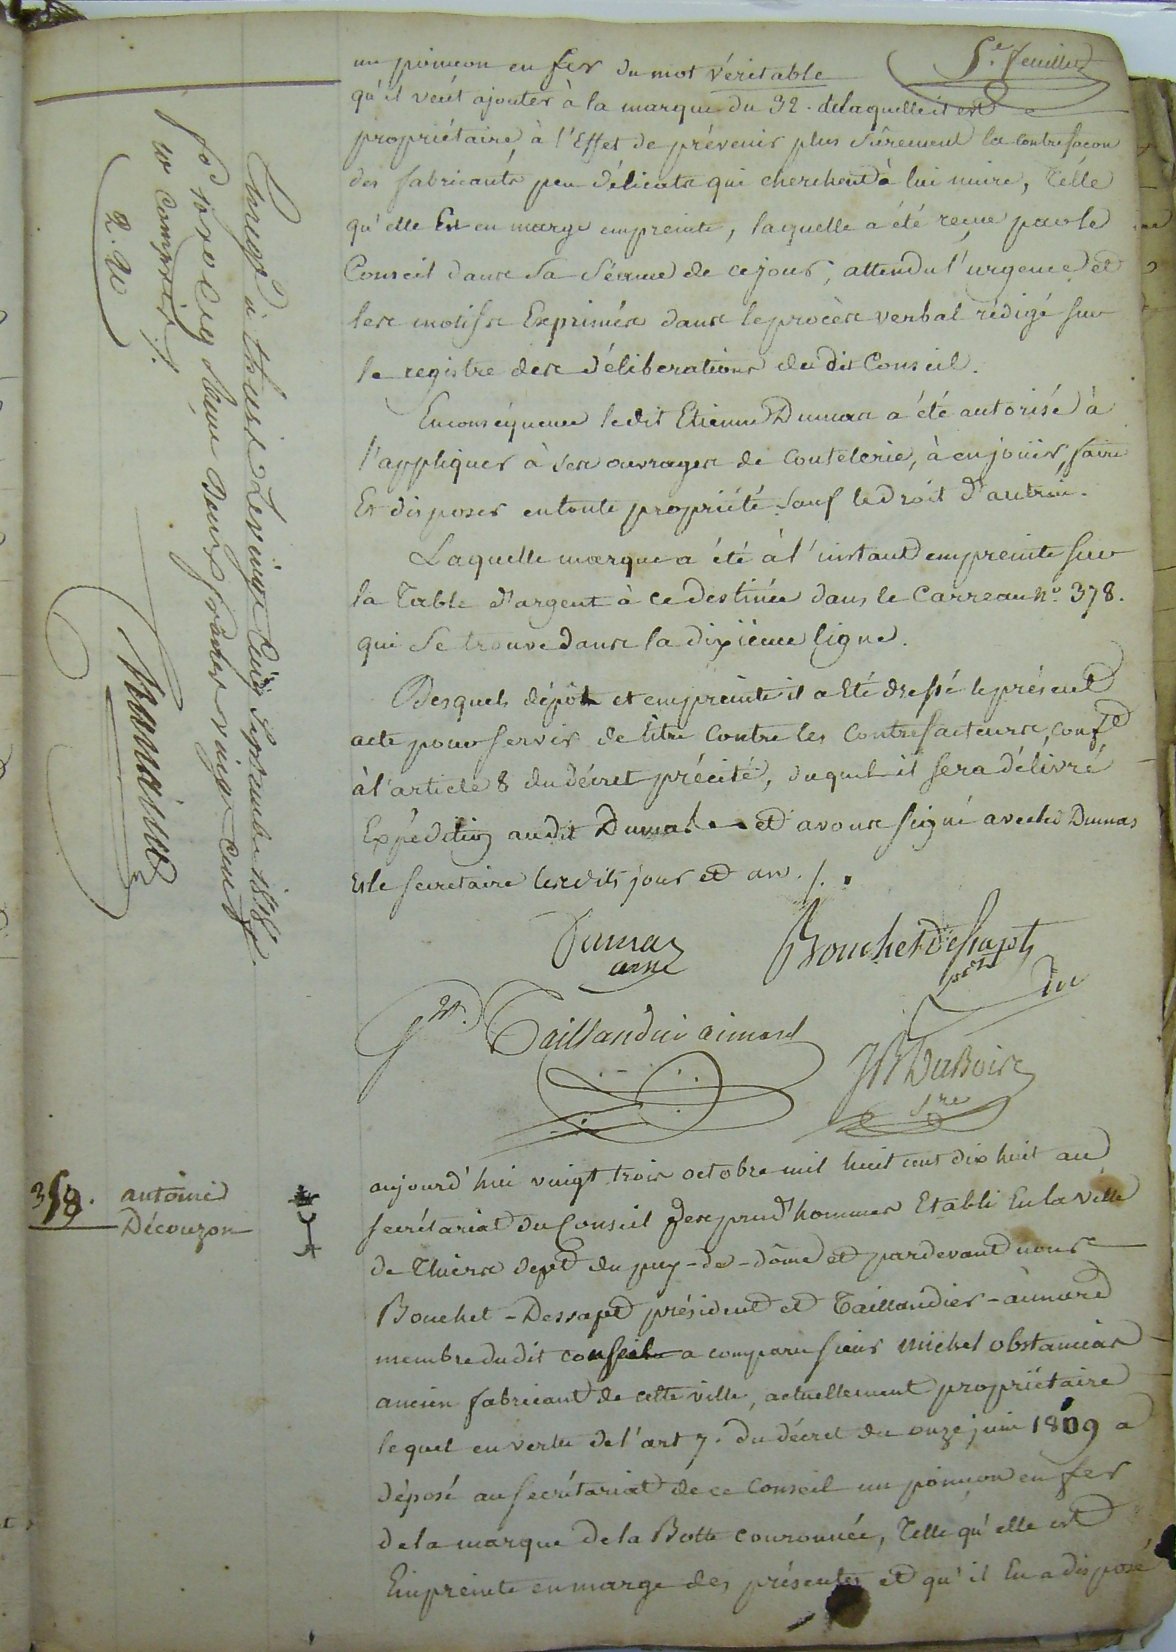 5e. feuillet
un poincon en fer du mot Véritable
qu'il veut ajouter à la marque du 32. de laquelle il est
propriétaire à l'Effet de prévenir plus sûrement la contrefacon
des fabricants peu délicats qui cherchent à lui nuire, Telle
qu'elle Est en marge empreinte, laquelle a été reçue par le
Conseil dans sa Séance de ce jour, attendu l'urgence et
les motifs Exprimés dans le procès verbal rédigé sur
le registre des déliberations du dit Conseil.
En conséquence ledit Etienne Dumas a été autorisé à
l'appliquer à ses ouvrages de Coutelerie, à en jouir, faire
Et disposer en toute propriété sauf le droit d'autrui.
Laquelle marque a été à l'instant empreinte sur
la Table d'argent à ce destinée dans le Carreau No. 378.
qui se trouve dans la dixième ligne.
Desquels dépôt et empreinte il a Eté dressé le présent
acte pour servir de titre Contre les Contrefacteurs, conf.t
à l'article 8 du décret précité, duquel il sera délivré
Expédition audit Dumas et avons signé avec led Dumas
Et le secretaire lesdits jour et an ./.
Dumas
ainé
Bouchet Dessapt
pdt
Gt. Taillandier aimard
JB DuBois
Sre
Enregé à thiers Le vingt cinq septembre 1818
fo
Reçu deux francs vingt cent
le compris
2.20
358.
antoine
Découzon
aujourd'hui vingt trois octobre mil huit cent dix huit au
secrétariat du Conseil des prud'hommes Etabli En la ville
de Thiers dept du puy-de-dôme et pardevant nous
Bouchet-Dessapt président et Taillandier-aimard
membre dudit conseil a comparu sieur michel obstancias
ancien fabricant de cette ville, actuellement propriétaire
lequel en vertu de l'art 7. du décret du onze juin 1809 a
déposé au secrétariat de ce Conseil un poinçon en fer
de la marque de la Botte couronnée, Telle qu'elle est
Empreinte en marge des présentes et qu'il En a disposé